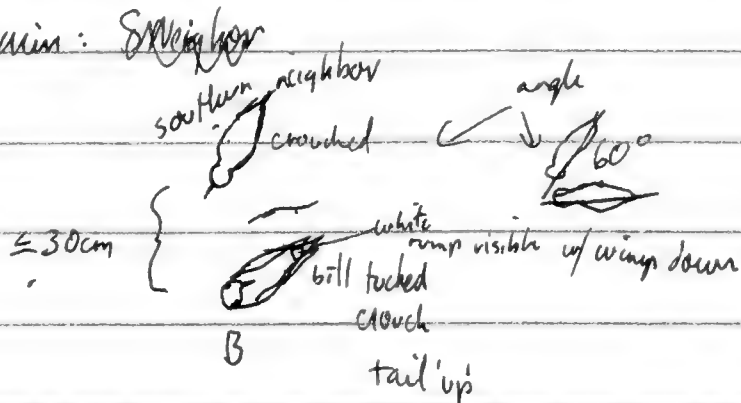 min: SNeighbor
southern neighbor
angle
crouched
60°
≤30cm
white
rump visible w/ wings down
bill tucked
crouch
B
tail 'up'